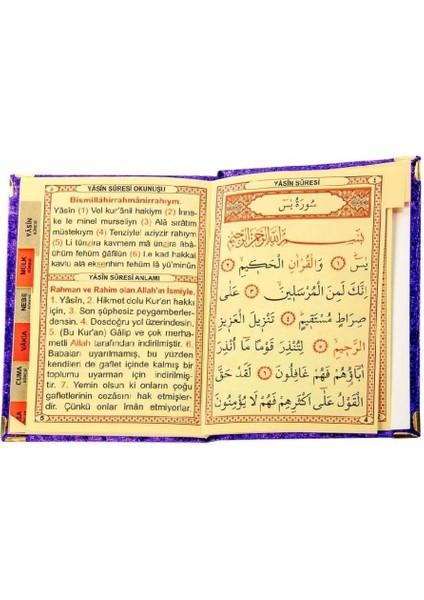 YÂSÎN SÛRESİ OKUNUŞU
Bismillâhirrahmânirrahıym.
Yâsîn (1) Vel kur'ânil hakiym (2) İnne-
ke le minel murseliyn (3) Alâ sırâtım
müstekiym (4) Tenziyle' aziyzir rahıym
(5) Li tünzira kavmem mâ ünzira âbâ-
ühüm fehüm ğâfilûn (6) Le kad hakkal
kavlü alâ ekserihim fehüm lâ yü'minûn
YÂSÎN SÛRESİ ANLAMI
Rahman ve Rahim olan Allah'ın İsmiyle.
1. Yâsîn, 2. Hikmet dolu Kur'an hakkı
için, 3. Son şüphesiz peygamberler-
densin. 4. Dosdoğru yol üzerindesin.
5. (Bu Kur'an) Gâlip ve çok merha-
metli Allah tarafından indirilmiştir. 6.
Babaları uyarılmamış, bu yüzden
kendileri de gaflet içinde kalmış bir
toplumu uyarman için indirilmiş-
tir. 7. Yemin olsun ki onların çoğu
gafletlerinin cezâsını hak etmişler-
dir. Çünkü onlar îman etmiyorlar.
YÂSİN
MÜLK
NEBE
VAKIA
CUMA
YÂSİN SÛRESİ
سُورَةُ يٰسٓ
بِسْمِ اللّٰهِ الرَّحْمٰنِ الرَّحِيمِ
يٰسٓ ﴿١﴾ وَالْقُرْاٰنِ الْحَكِيمِ ﴿٢﴾
اِنَّكَ لَمِنَ الْمُرْسَلِينَ ﴿٣﴾ عَلٰى
صِرَاطٍ مُسْتَقِيمٍ ﴿٤﴾ تَنْزِيلَ الْعَزِيزِ
الرَّحِيمِ ﴿٥﴾ لِتُنْذِرَ قَوْمًا مَٓا اُنْذِرَ
اٰبَٓاؤُهُمْ فَهُمْ غَافِلُونَ ﴿٦﴾ لَقَدْ حَقَّ
الْقَوْلُ عَلٰٓى اَكْثَرِهِمْ فَهُمْ لَا يُؤْمِنُونَ